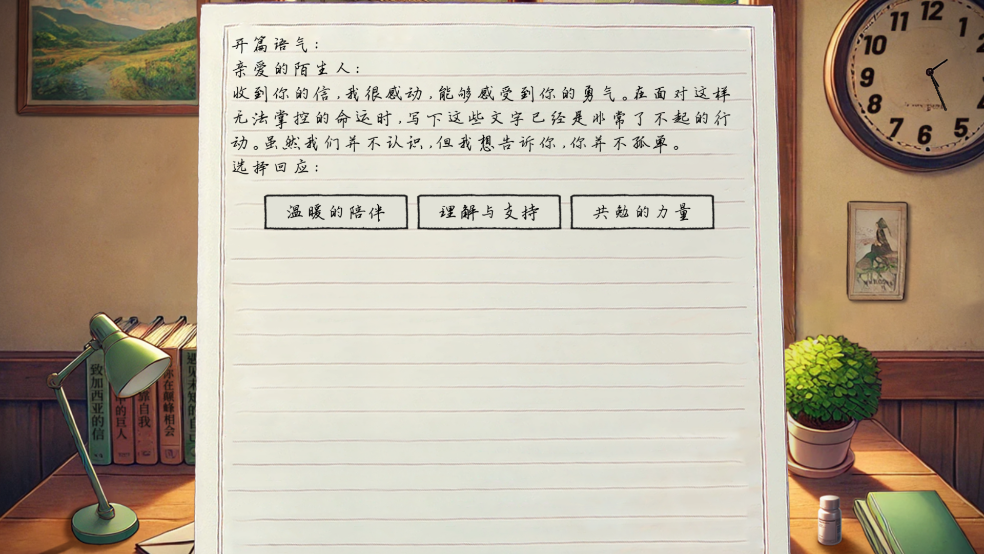 开篇语气：
亲爱的陌生人：
收到你的信，我很感动，能够感受到你的勇气。在面对这样
无法掌控的命运时，写下这些文字已经是非常了不起的行
动。虽然我们并不认识，但我想告诉你，你并不孤单。
选择回应：
温暖的陪伴 理解与支持 共勉的力量
12
11
1
10
9
8
7
6
5
致加西亚的信
的巨人
靠自我
在巅峰相会
遇见未知的自己